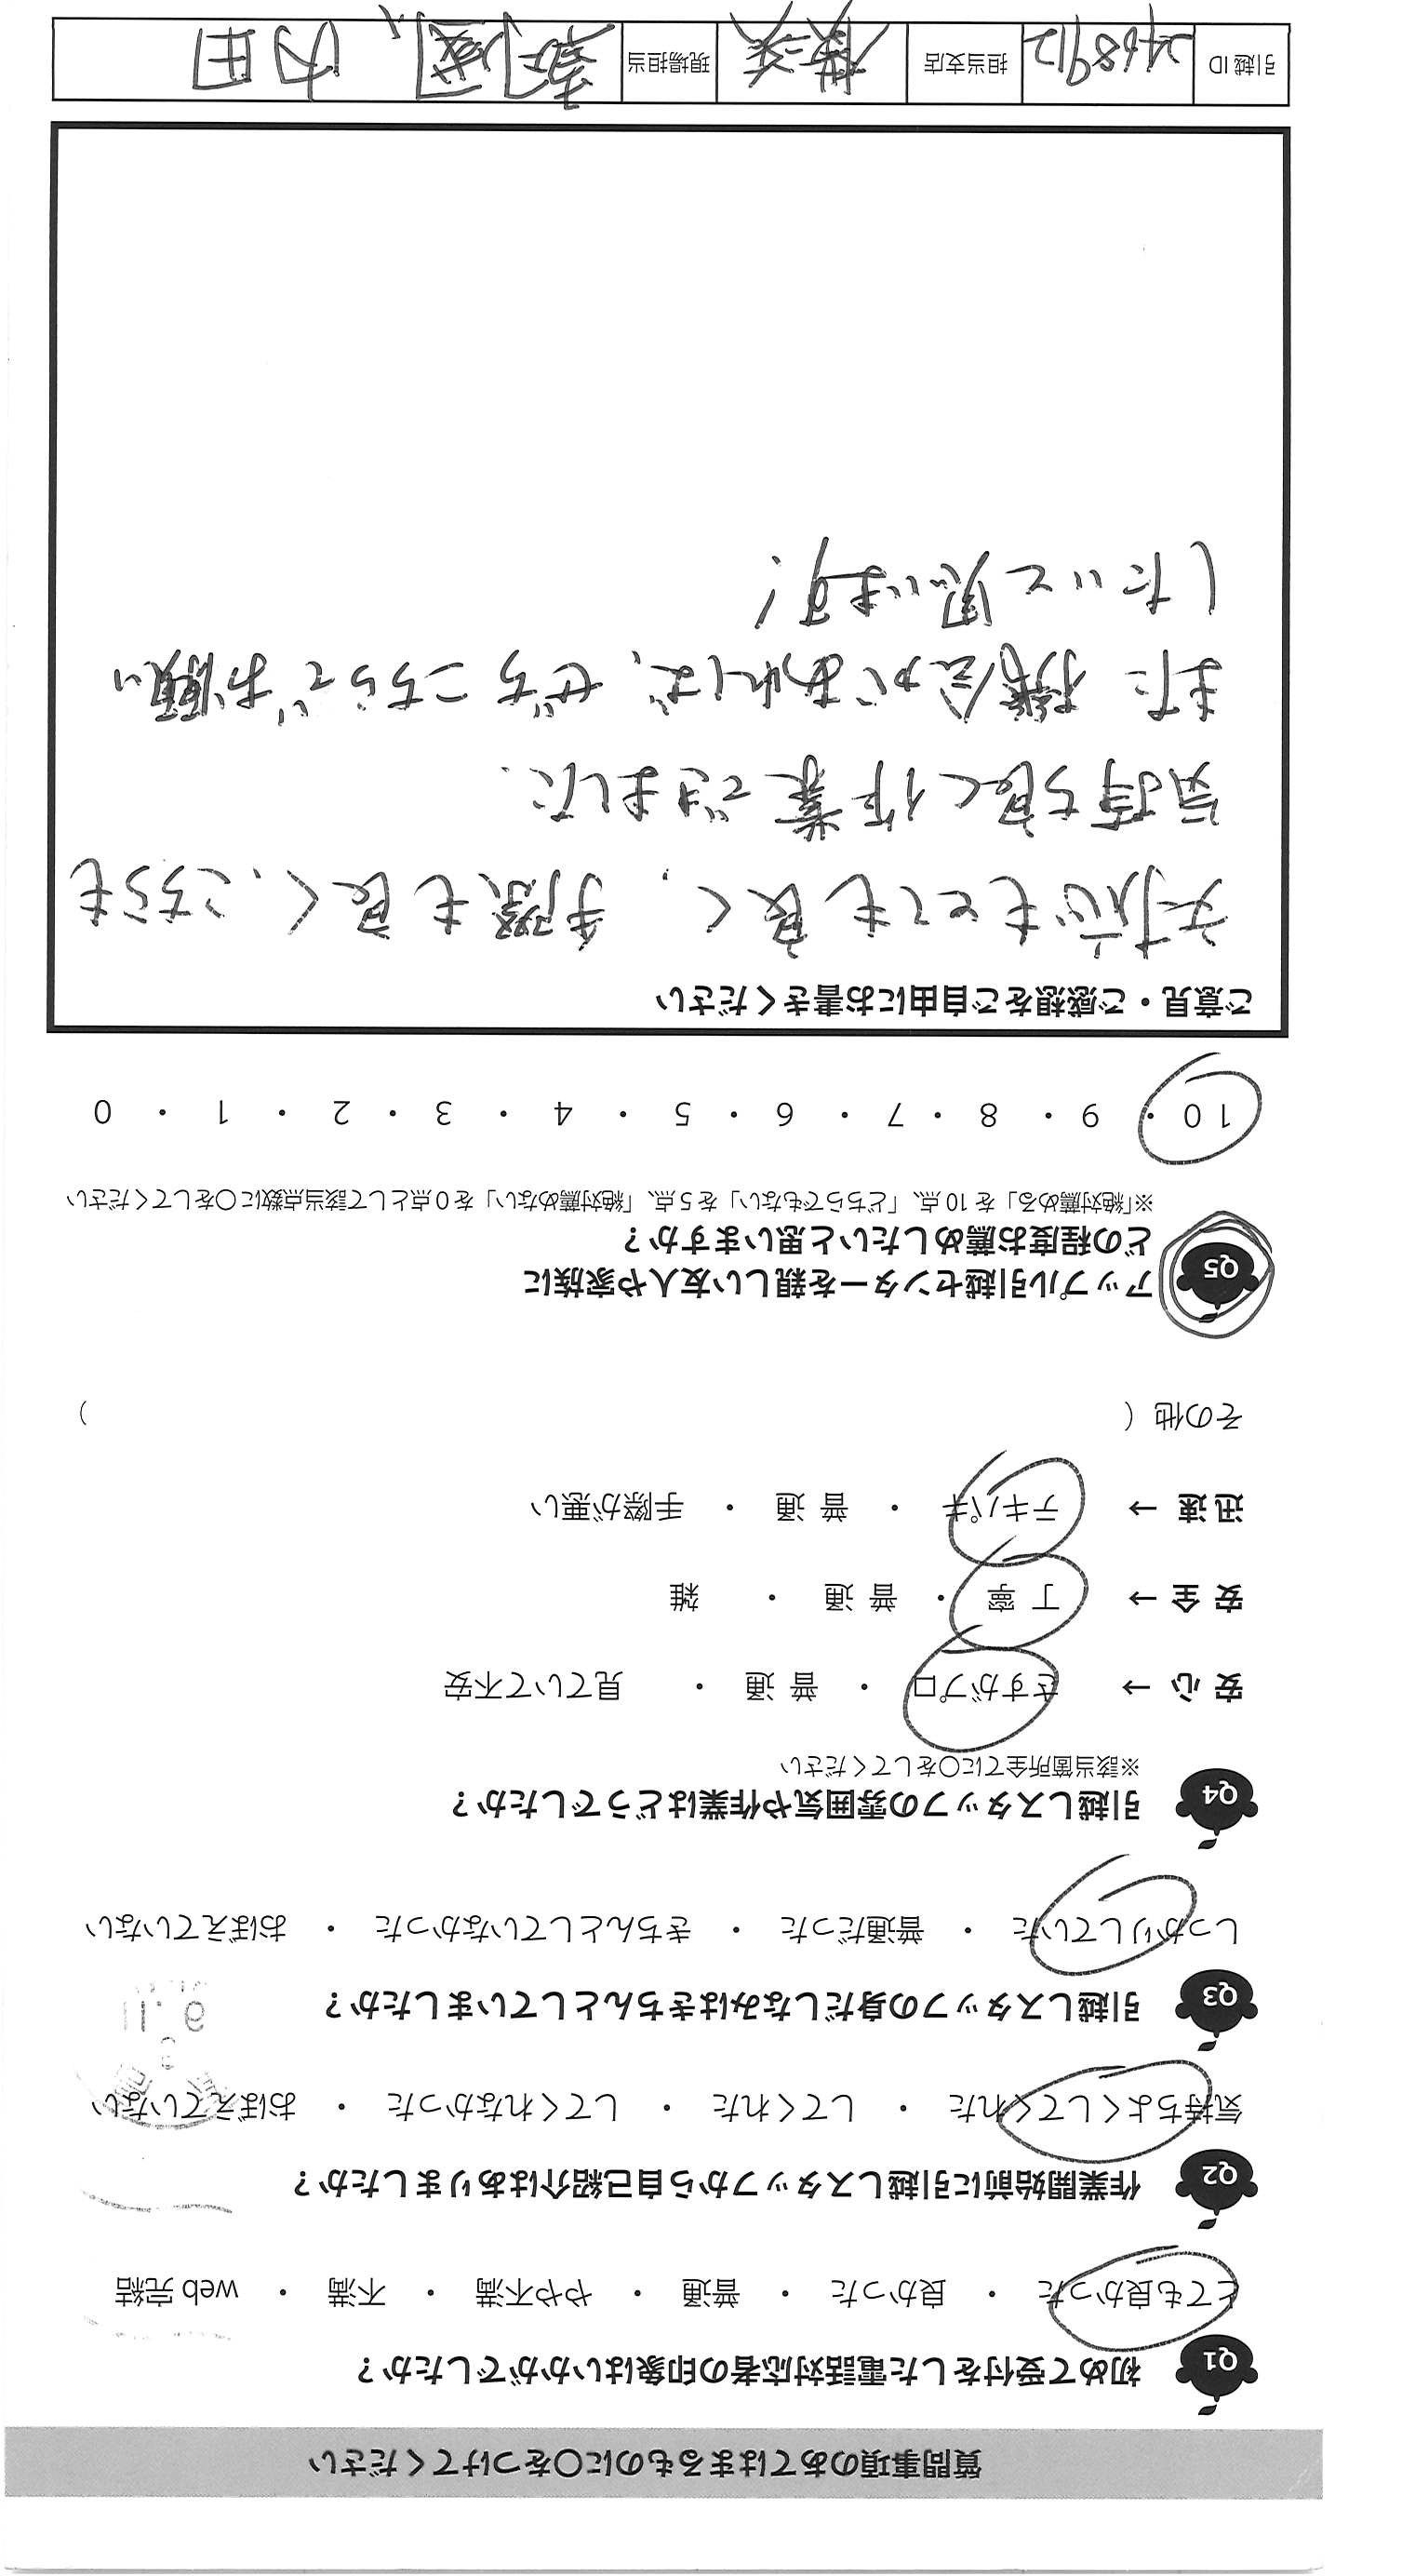 質問事項のあてはまるものに○をつけてください
Q1 初めて受付をした電話対応者の印象はいかがでしたか？
とても良かった ・ 良かった ・ 普通 ・ やや不満 ・ 不満 ・ web 完結
Q2 作業開始前に引越しスタッフから自己紹介はありましたか？
気持ちよくしてくれた ・ してくれた ・ してくれなかった ・ おぼえていない
Q3 引越しスタッフの身だしなみはきちんとしていましたか？
9.11
しっかりしていた ・ 普通だった ・ きちんとしていなかった ・ おぼえていない
Q4 引越しスタッフの雰囲気や作業はどうでしたか？
※該当箇所全てに○をしてください
安 心 → さすがプロ ・ 普 通 ・ 見ていて不安
安 全 → 丁 寧 ・ 普 通 ・ 雑
迅 速 → テキパキ ・ 普 通 ・ 手際が悪い
その他（ ）
Q5 アップル引越センターを親しい友人や家族に
どの程度お薦めしたいと思いますか？
※「絶対薦める」を 10 点、「どちらでもない」を 5 点、「絶対薦めない」を 0 点として該当点数に○をしてください
10 ・ 9 ・ 8 ・ 7 ・ 6 ・ 5 ・ 4 ・ 3 ・ 2 ・ 1 ・ 0
ご意見・ご感想をご自由にお書きください
対応もとても良く、手際も良く、こちらも
気持ち良く作業できました。
また機会があれば、ぜひこちらでお願い
したいと思います！
引越 ID 2468912 担当支店 横浜 現場担当 内田